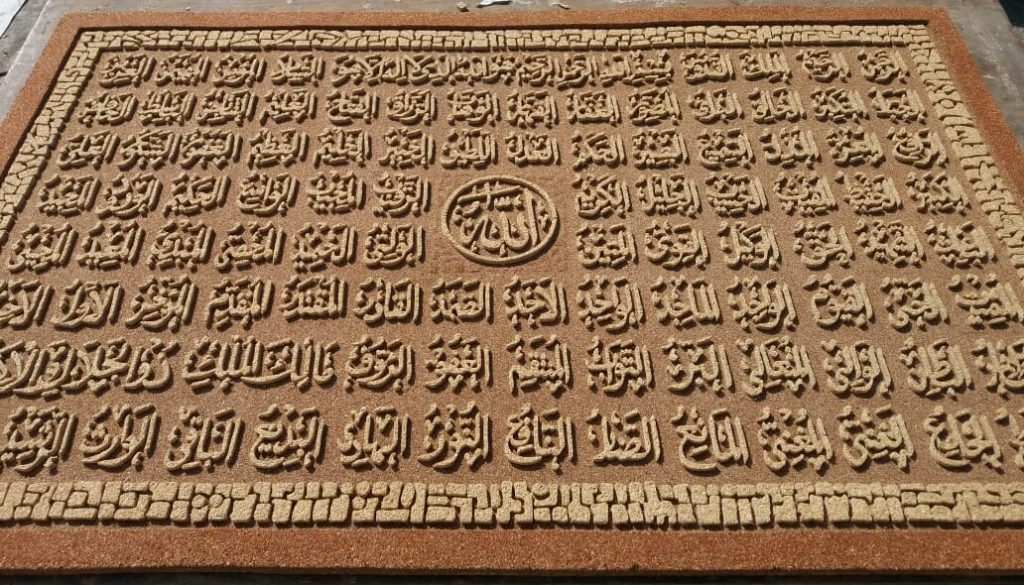 السلام المؤمن المهيمن العزيز
الجبار المتكبر الخالق البارئ المصور الغفار القهار الوهاب الرزاق الفتاح العليم القابض الباسط الخافض
الرافع المعز المذل السميع البصير الحكم العدل اللطيف الخبير الحليم العظيم الغفور الشكور العلي
الكبير الحفيظ المقيت الحسيب الجليل الكريم الرقيب المجيب الواسع الحكيم الودود المجيد
الله
الباعث الشهيد الحق الوكيل القوي المتين الولي الحميد المحصي المبدئ المعيد المحيي
المميت الحي القيوم الواجد الماجد الواحد الاحد الصمد القادر المقتدر المقدم المؤخر الاول الاخر
الباطن الوالي المتعالي البر التواب المنتقم العفو الرؤف مالك الملك ذو الجلال والاكرام
الجامع الغني المغني المانع الضار النافع النور الهادي البديع الباقي الوارث الرشيد